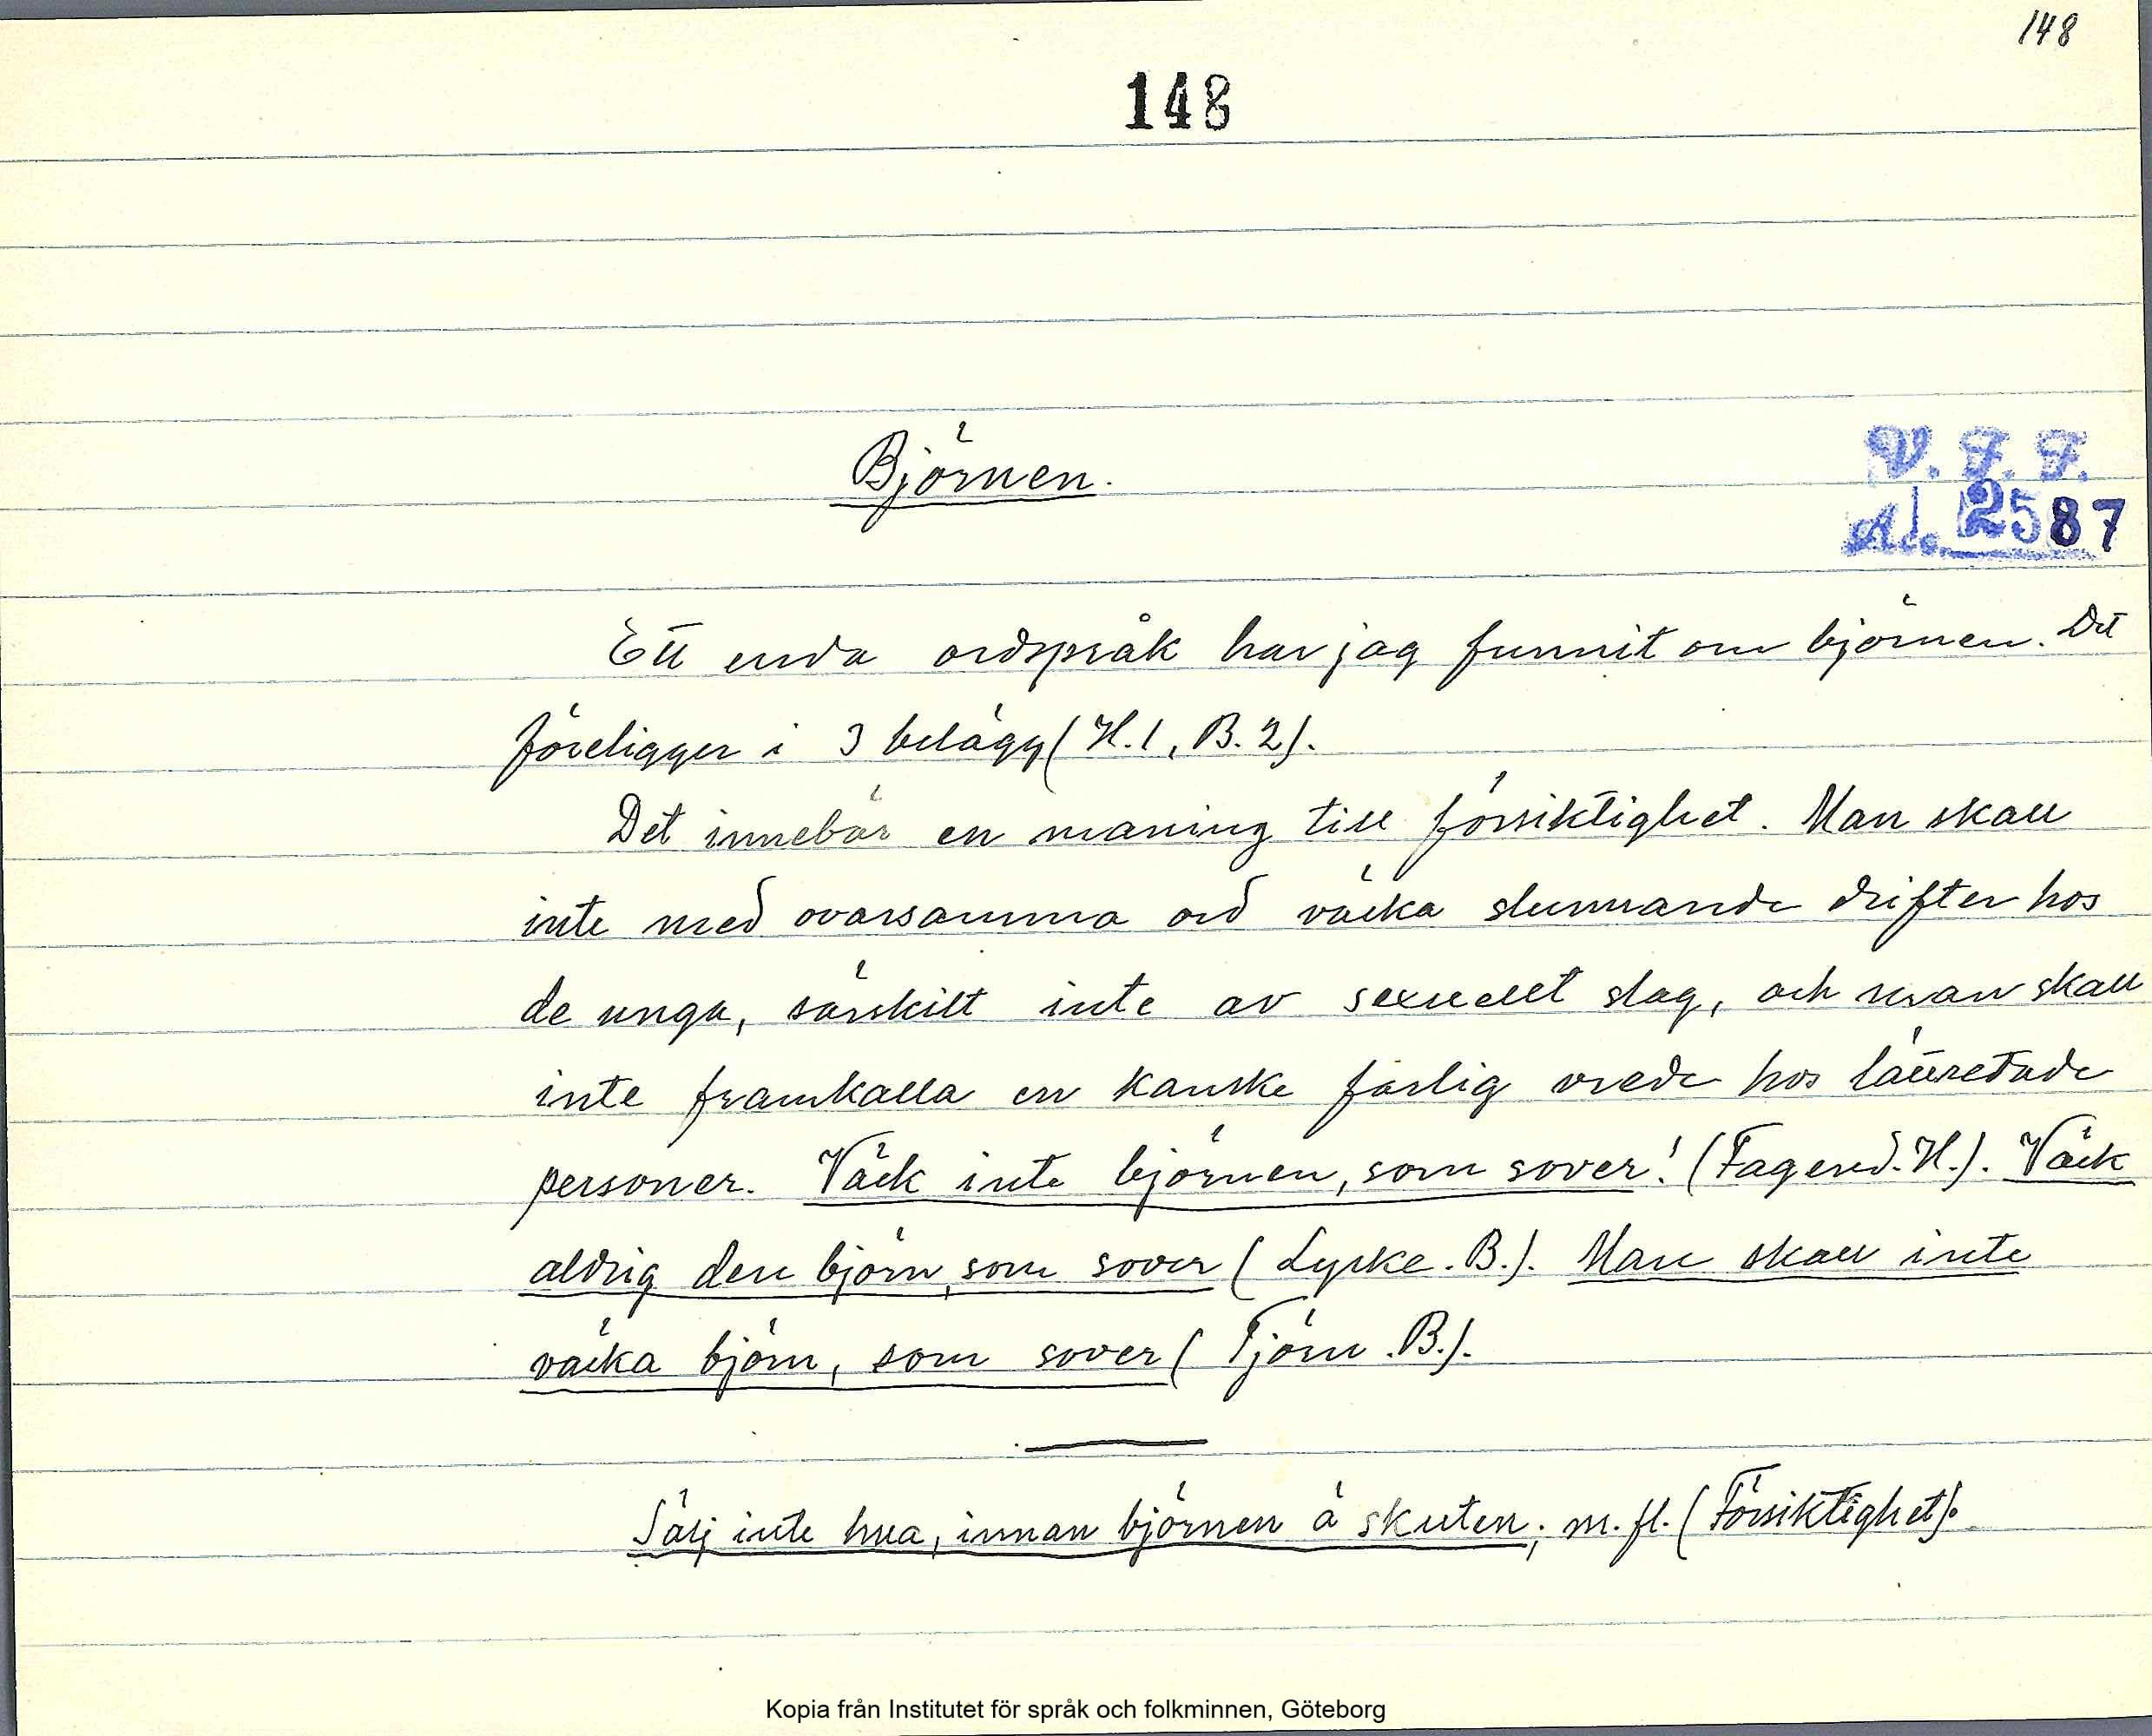 148
148
Björnen.
V. F. F.
Acc. 2587
Ett enda ordspråk har jag funnit om björnen. Det
föreligger i 3 belägg (H. 1, B. 2).
Det innebär en maning till försiktighet. Man skall
inte med ovarsamma ord väcka slumrande drifter hos
de unga, särskilt inte av sexuellt slag, och man skall
inte framkalla en kanske farlig vrede hos lättretade
personer. Väck inte björnen, som sover! (Fagered. H.). Väck
aldrig den björn, som sover (Lyrke. B.). Man skall inte
väcka björn, som sover (Tjörn. B.).
Sälj inte hua, innan björnen ä skuten; m. fl. (Försiktighet).
Kopia från Institutet för språk och folkminnen, Göteborg